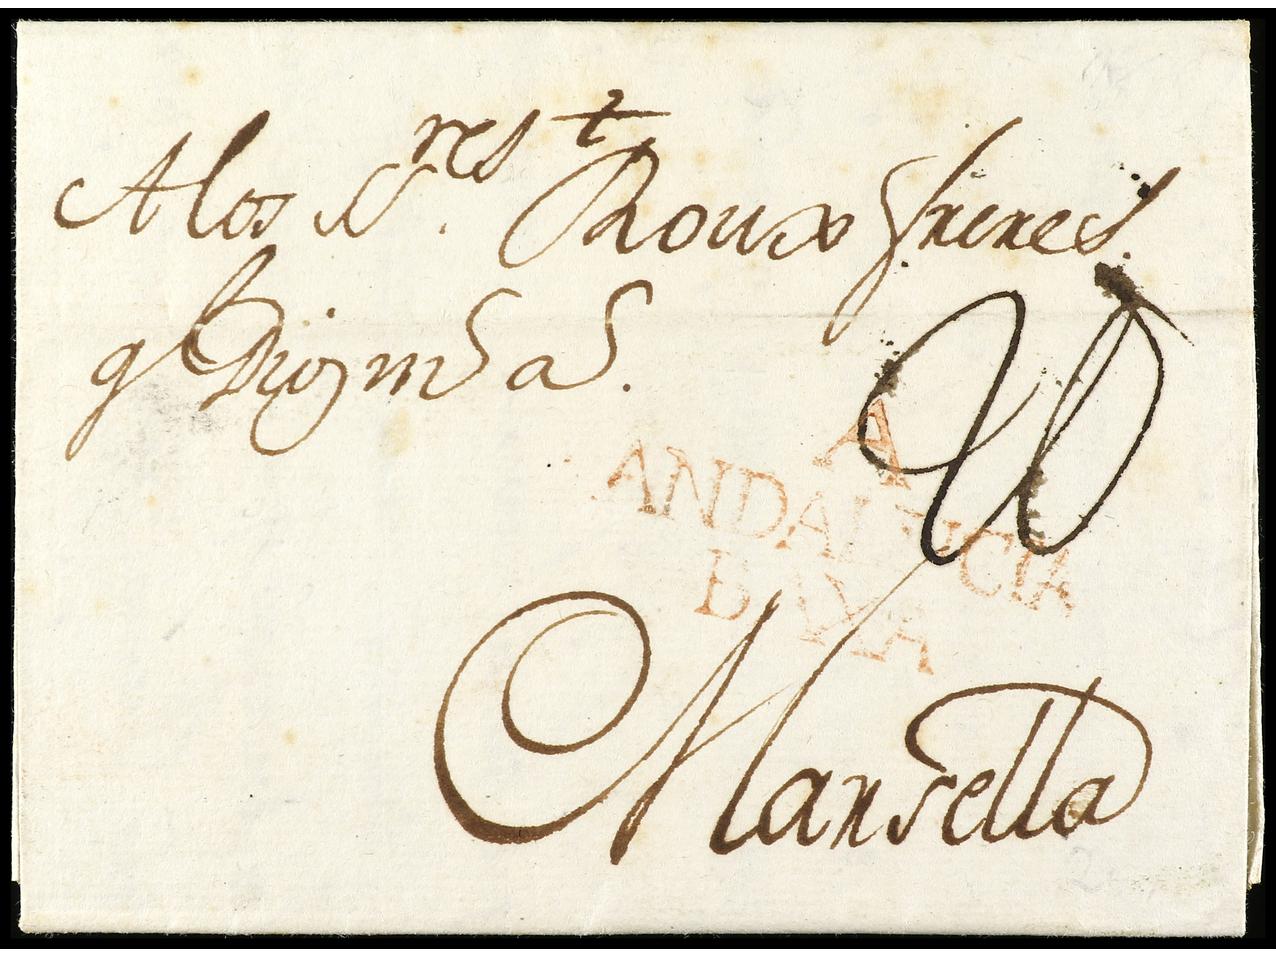 A los S.res Roux freres
q Dios m.s a.s
A
ANDALUCIA
BAXA
Marsella